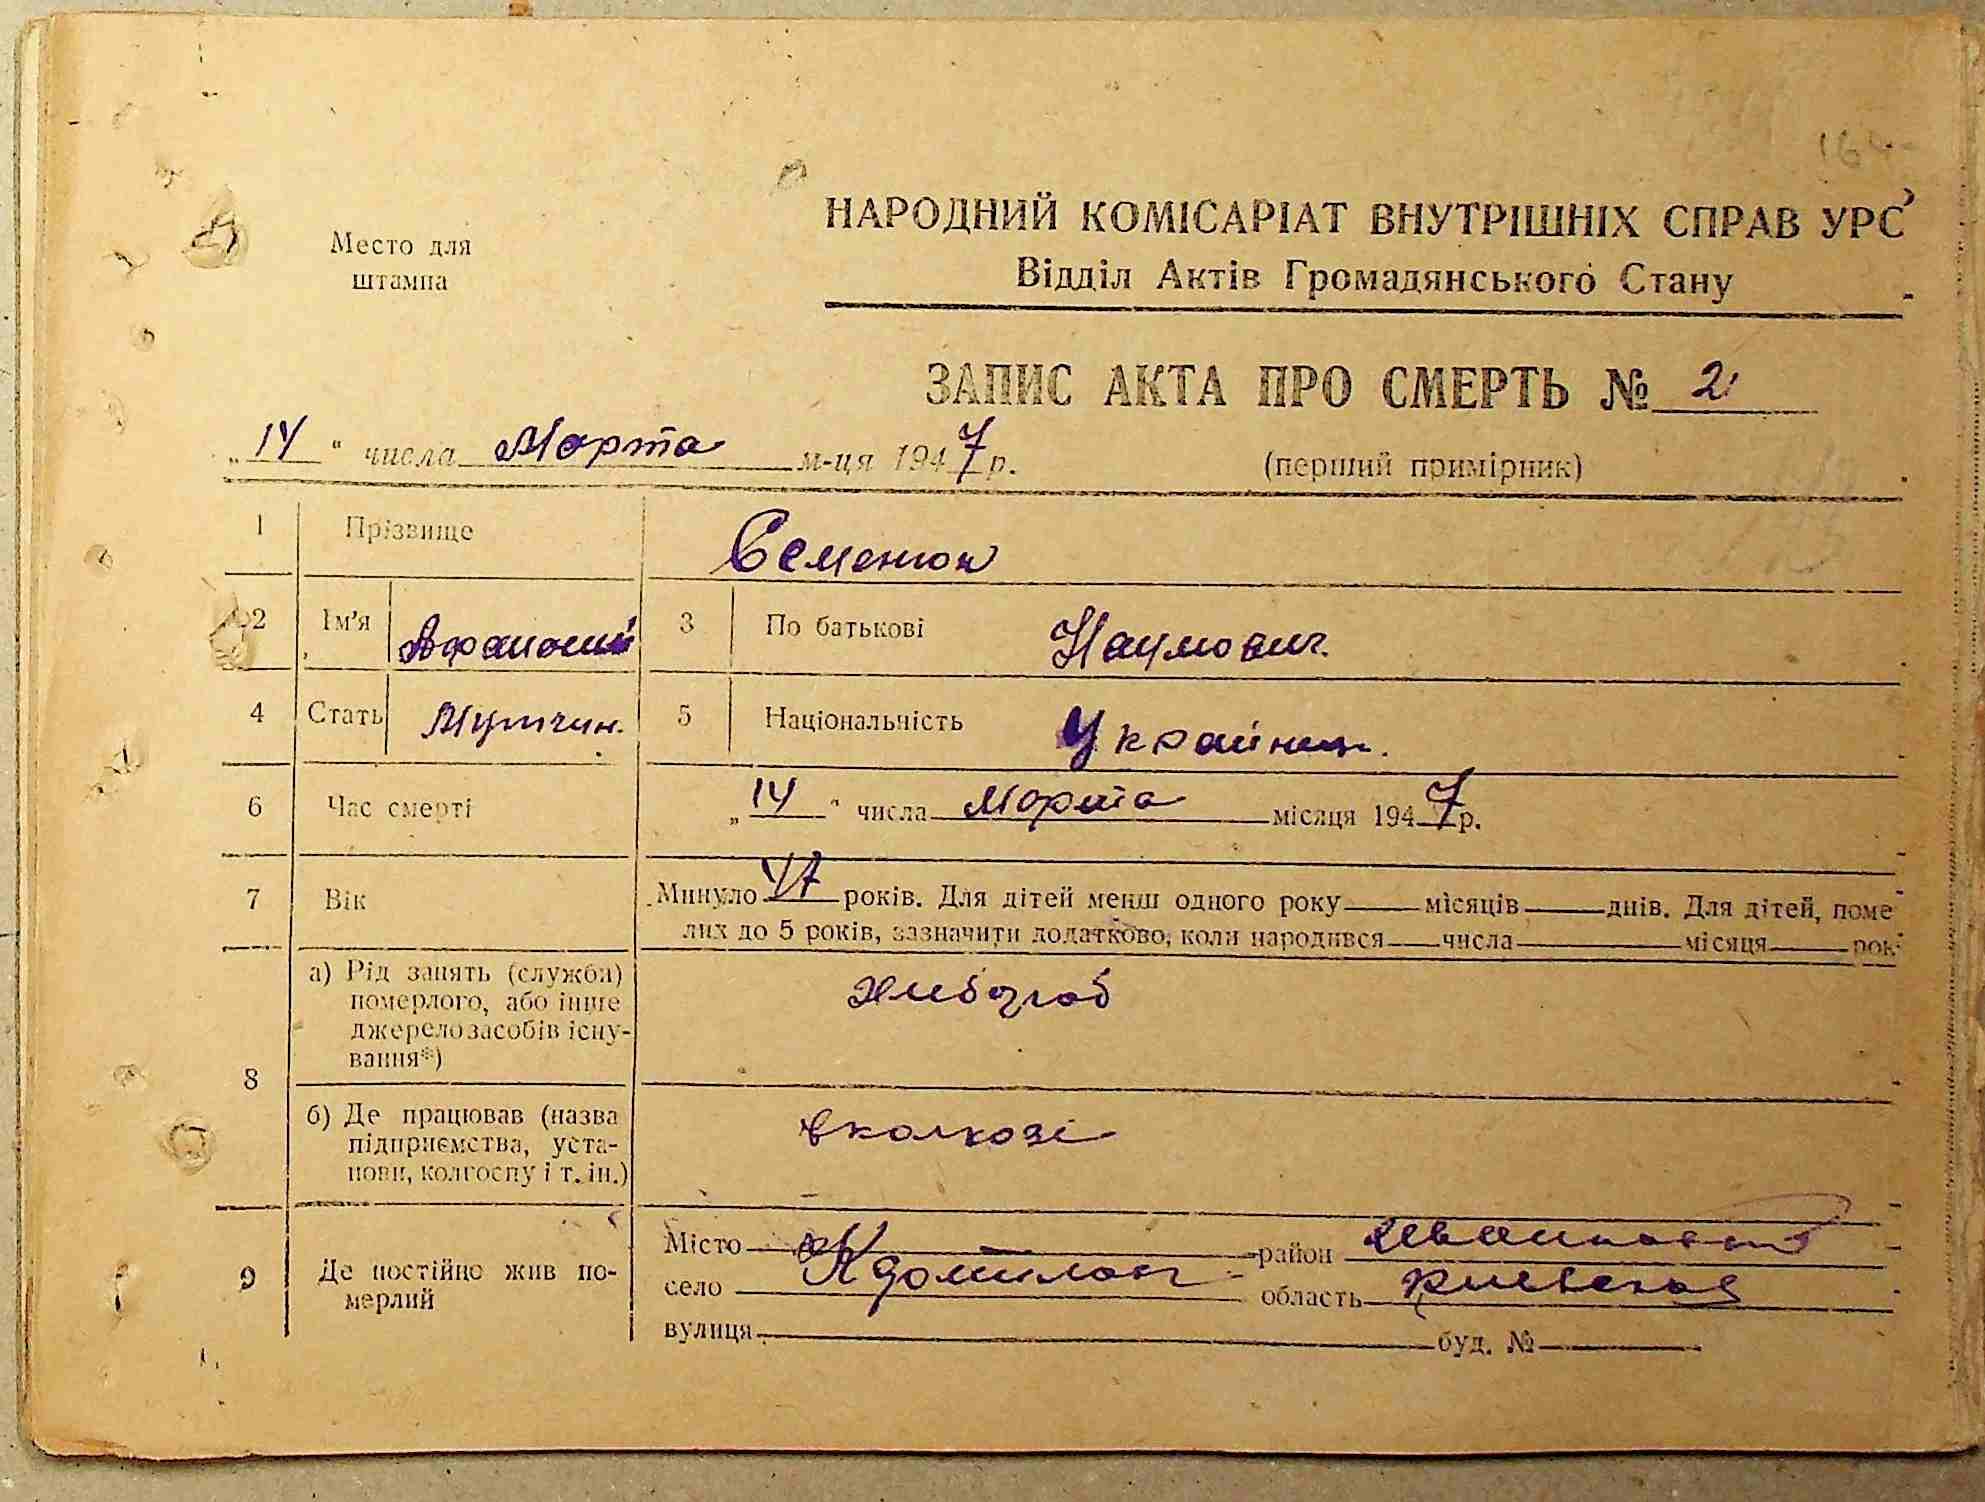 Место для
штампа
НАРОДНИЙ КОМІСАРІАТ ВНУТРІШНІХ СПРАВ УРС
Відділ Актів Громадянського Стану
ЗАПИС АКТА ПРО СМЕРТЬ № 2
„14“ числа Марта м-ця 1947 р.
(перший примірник)
1 Прізвище Семенюк
2 Ім'я Афанасий 3 По батькові Наумович.
4 Стать Мужчин. 5 Національність Украйнец.
6 Час смерті „14“ числа Марта місяця 1947 р.
7 Вік Минуло 47 років. Для дітей менш одного року місяців днів. Для дітей, поме
лих до 5 років, зазначити додатково, коли народився числа місяця рок
8 а) Рід занять (служби)
померлого, або інше
джерело засобів існу-
вання*)
хлибороб
б) Де працював (назва
підприємства, уста-
нови, колгоспу і т. ін.)
вколхозі
9 Де постійно жив по-
мерлий
Місто район
село область Киевская
вулиця буд. №